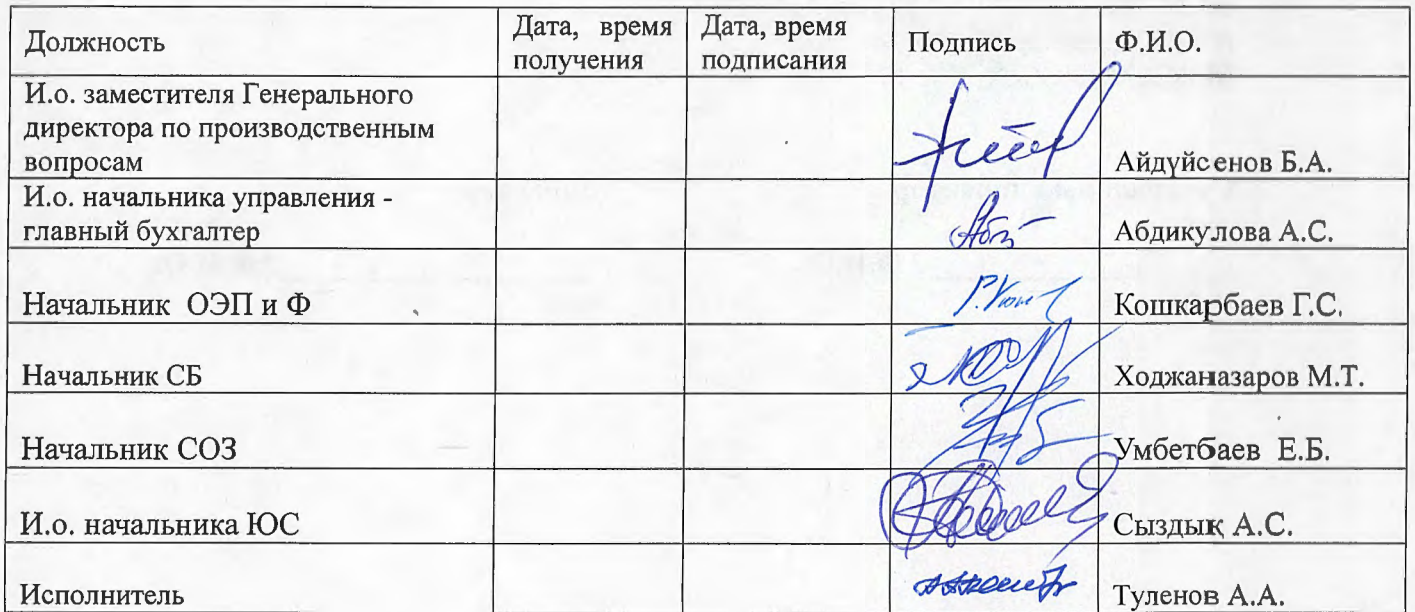 Должность Дата, время Дата, время Подпись Ф.И.О.
получения подписания
И.о. заместителя Генерального
директора по производственным
вопросам Айдүйсенов Б.А.
И.о. начальника управления -
главный бухгалтер Абдикулова А.С.
Начальник ОЭП и Ф Кошкарбаев Г.С.
Начальник СБ Ходжаназаров М.Т.
Начальник СОЗ Умбетбаев Е.Б.
И.о. начальника ЮС Сыздық А.С.
Исполнитель Туленов А.А.